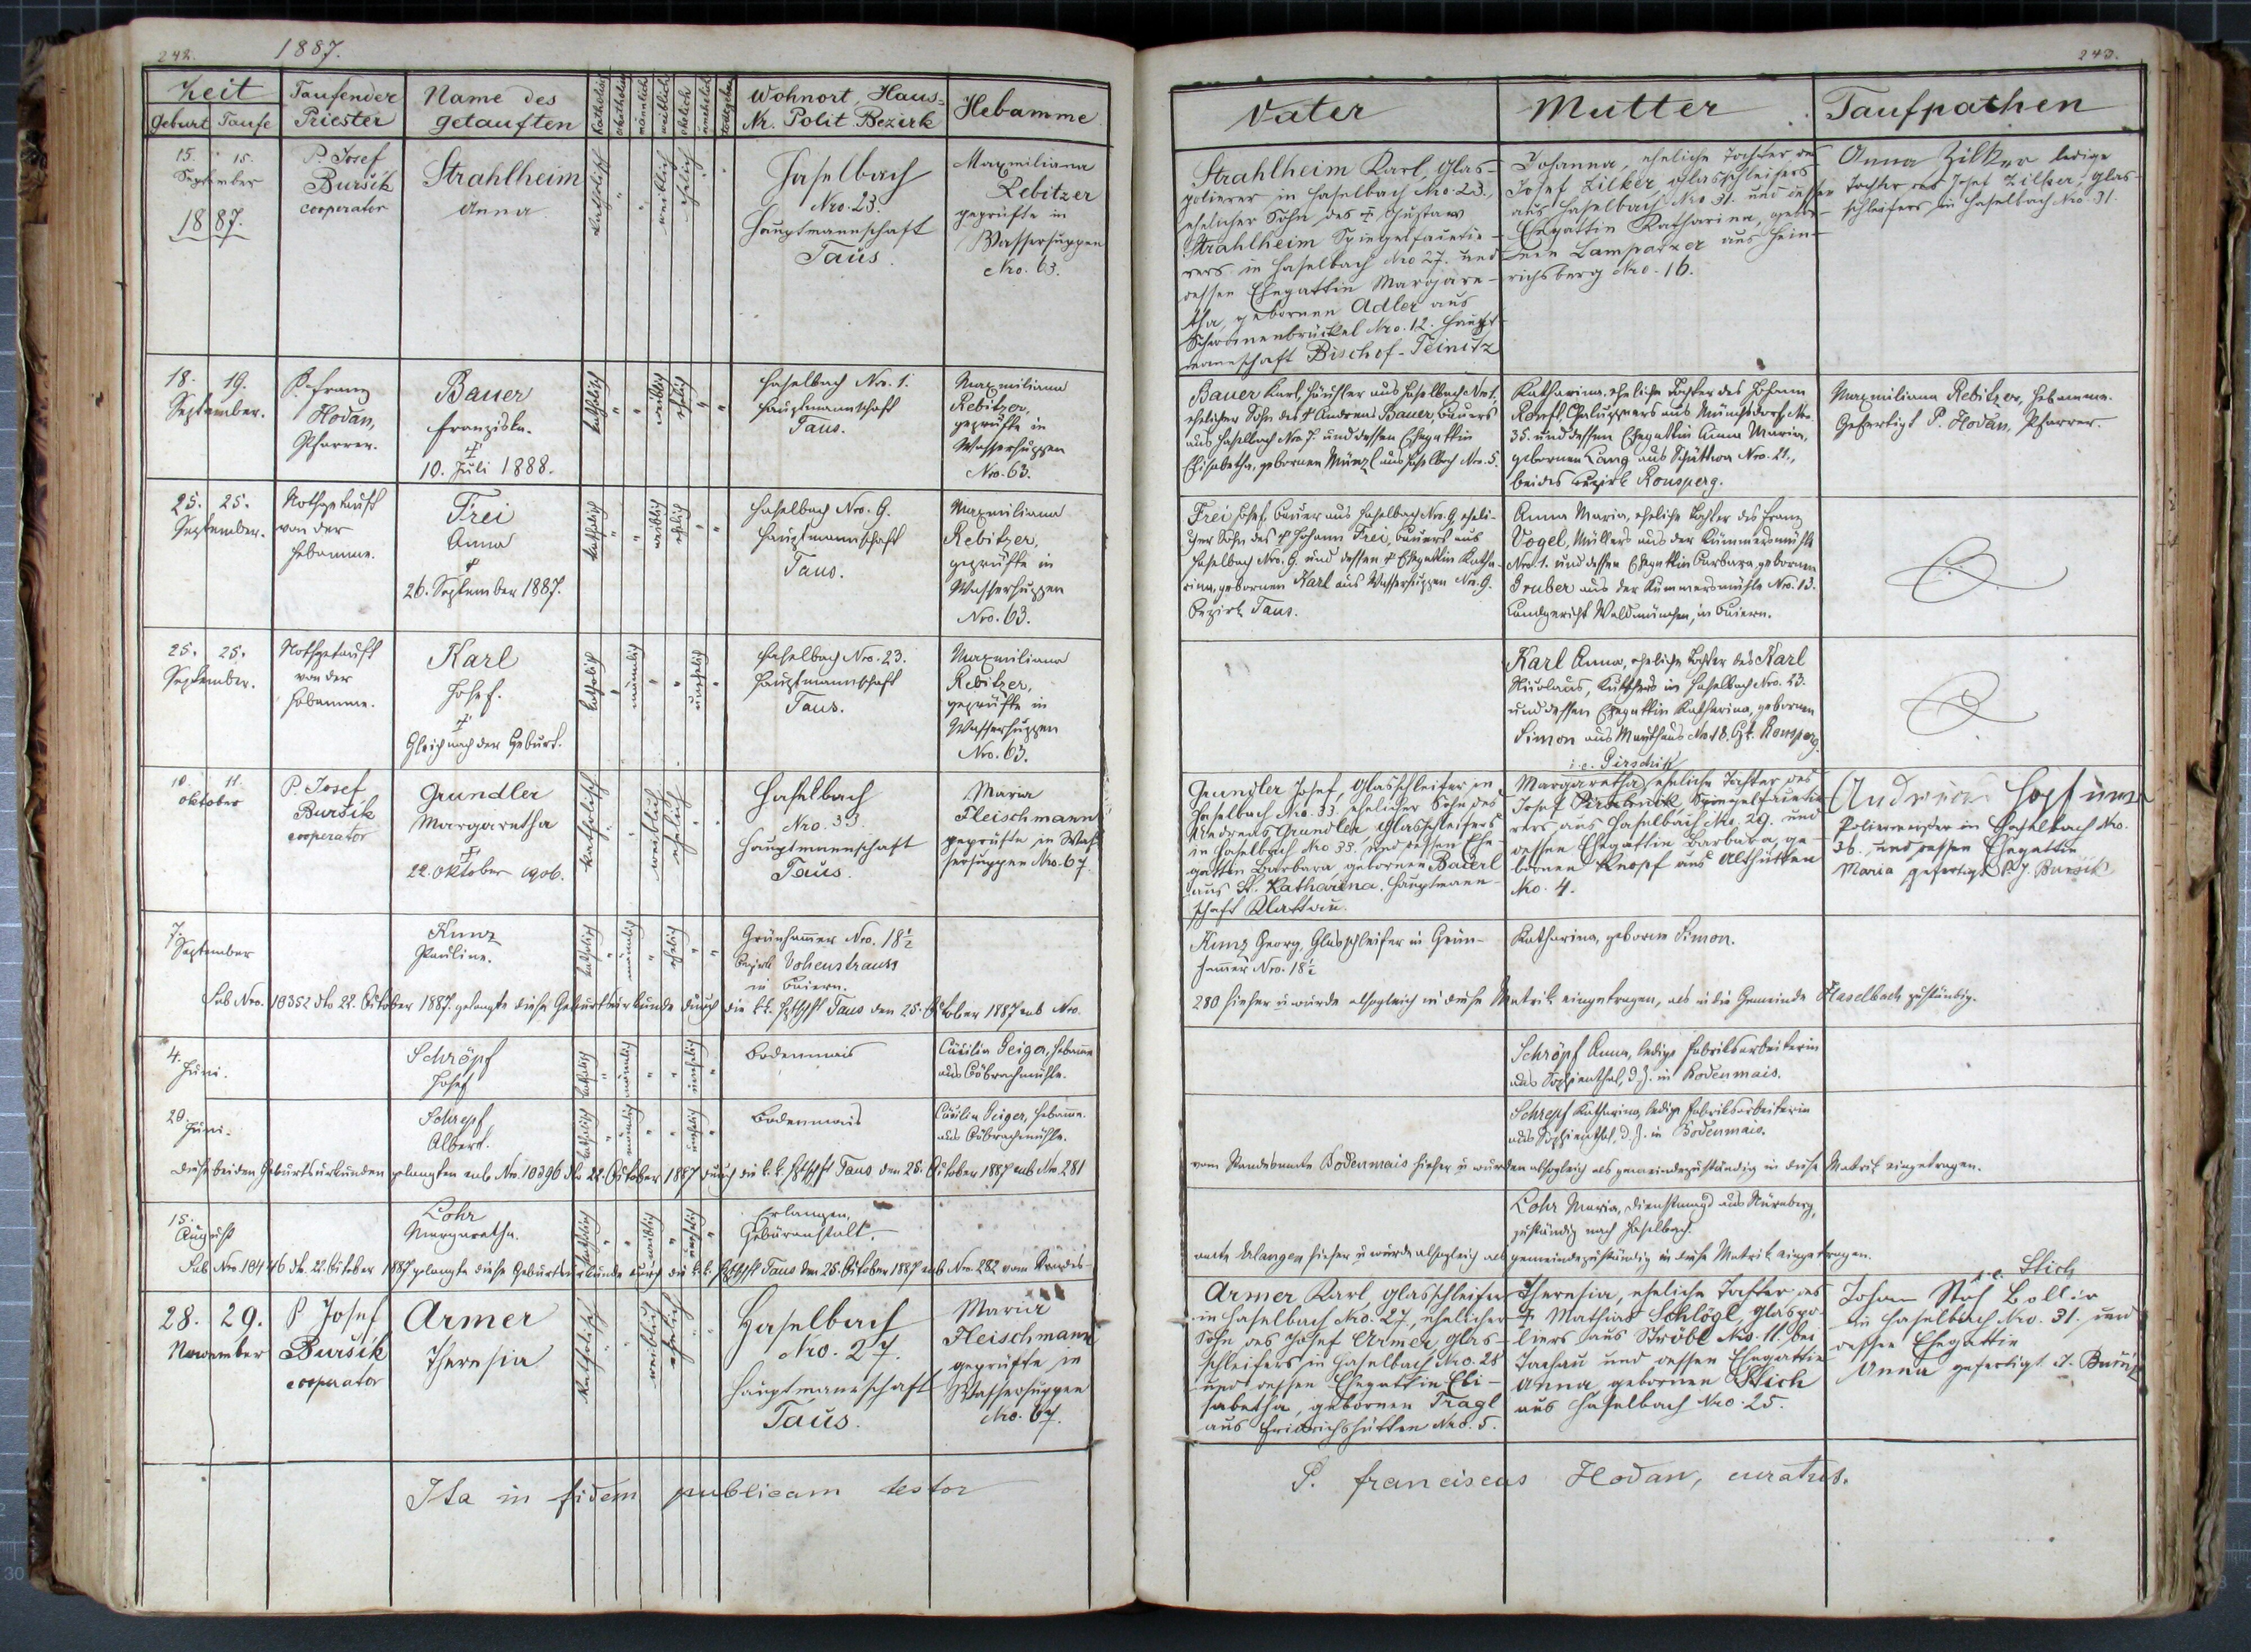 242.
1887.
Zeit
Geburt Taufe
Taufender
Priester
Name des
getauften
katholisch
akatholisch
männlich
weiblich
ehelich
unehelich
todtgeboren
Wohnort, Haus=
Nr. Polit Bezirk
Hebamme
15. 15.
September
1887.
P. Josef
Buršik
cooperator
Strahlheim
Anna
katholisch " " weiblich ehelich " "
Haselbach
Nro. 23.
Hauptmannschaft
Taus.
Maxmiliana
Rebitzer
geprüfte in
Wassersuppen
Nro. 63.
18. 19.
September.
P. Franz
Hodan,
Pfarrer.
Bauer
Franziska.
†
10. Juli 1888.
katholisch " " weiblich ehelich " "
Haselbach Nro. 1.
Hauptmannschaft
Taus.
Maxmiliana
Rebitzer,
geprüfte in
Wassersuppen
Nro. 63.
25. 25.
September.
Nothgetauft
von der
Hebamme.
Frei
Anna
†
26. September 1887.
katholisch " " weiblich ehelich " "
Haselbach Nro. 9.
Hauptmannschaft
Taus.
Maxmiliana
Rebitzer,
geprüfte in
Wassersuppen
Nro. 63.
25. 25.
September.
Nothgetauft
von der
Hebamme.
Karl
Josef.
†
Gleich nach der Geburt.
katholisch " männlich " " unehelich "
Haselbach Nro. 23.
Hauptmannschaft
Taus.
Maxmiliana
Rebitzer,
geprüfte in
Wassersuppen
Nro. 63.
10. 11.
Oktober
P. Josef
Buršik
cooperator
Grundler
Margaretha
†
22. Oktober 1906.
katholisch " " weiblich ehelich " "
Haselbach
Nro. 33.
Hauptmannschaft
Taus.
Maria
Fleischmann
geprüfte in Was
sersuppen Nro. 67.
7.
September
Kunz
Pauline.
katholisch " männlich " ehelich " "
Grünhammer Nro. 18½
Bezirk Vohenstrauss
in Baiern.
Sub Nro. 10352 dto 22. October 1887. gelangte diese Geburtsurkunde durch die k.k. Hptschft Taus den 25. October 1887 sub Nro.
4.
Juni.
Schröpf
Josef
katholisch " männlich " " unehelich "
Bodenmais
Cäcilia Geiger, Hebamme
aus Böbrachmühle.
20.
Juni.
Schrepf
Albert.
katholisch " männlich " " unehelich "
Bodenmais
Cäcilia Geiger, Hebamme.
aus Böbrachmühle.
Diese beiden Geburtsurkunden gelangten sub Nro. 10396 dto 22. October 1887 durch die k.k. Hptschft Taus den 25. October 1887 sub Nro. 281
15.
August
Lohr
Margaretha.
katholisch " " weiblich " unehelich "
Erlangen,
Gebäranstalt.
Sub Nro. 10446 dto. 22. October 1887 gelangte diese Geburtsurkunde durch die k.k. Hptschft Taus den 25. October 1887 sub Nro. 282 vom Standes-
28. 29.
November
P Josef
Buršik
cooperator
Armer
Theresia
katholisch " " weiblich ehelich " "
Haselbach
Nro. 27.
Hauptmannschaft
Taus.
Maria
Fleischmann
geprüfte in
Wassersuppen
Nro. 67.
Ita in fidem publicam testor
243.
Vater
Mutter
Taufpathen
Strahlheim Karl, Glas-
polierer in Haselbach Nro. 23.,
ehelicher Sohn des † Gustav
Strahlheim Spiegelfacetie-
rers in Haselbach Nro 27. und
dessen Ehegattin Margare-
tha, gebornen Adler aus
Schwonenbrückel Nro. 12. Haupt-
mannschaft Bischof-Teinitz
Johanna, eheliche Tochter des
Josef Zilker, Glasschleifers
aus Haselbach Nro 31. und dessen
Ehegattin Katharina, gebor-
nen Lamparzer aus Hein-
richsberg Nro. 16.
Anna Zilker ledige
Tochter des Josef Zilker, Glas-
schleifers in Haselbach Nro. 31.
Bauer Karl, Häusler aus Haselbach Nro 1.
ehelicher Sohn des † Andreas Bauer, Bauers
aus Haselbach Nro. 7. und dessen Ehegattin
Elisabetha, gebornen Münzl aus Haselbach Nro. 5.
Katharina, eheliche Tochter des Johann
Chaluppners aus Münchsdorf Nro
35. und dessen Ehegattin Anna Maria,
gebornen Lang aus Schüttwa Nro. 21.,
beides Bezirk Ronsperg.
Maxmiliana Rebitzer, Hebamme.
Gefertigt P. Hodan, Pfarrer.
Frei Josef, Bauer aus Haselbach Nro. 9, eheli-
cher Sohn des † Johann Frei, Bauers aus
Haselbach Nro. 9. und dessen † Ehegattin Katha-
rina, gebornen Karl aus Wassersuppen Nro. 9.
Bezirk Taus.
Anna Maria, eheliche Tochter des Franz
Vogel, Müllers aus der Kummersmühle
Nro. 1. und dessen Ehegattin Barbara gebornen
Gruber aus der Kummersmühle Nro. 13.
Landgericht Waldmünchen, in Baiern.
Karl Anna, eheliche Tochter des Karl
Nicolaus, Kutschers in Haselbach Nro. 23.
und dessen Ehegattin Katharina, gebornen
Simon aus Mauthaus Nro 18. Bzk. Ronsperg.
i. e. Pirschik
Grundler Josef, Glasschleifer in
Haselbach Nro. 33. ehelicher Sohn des
Andreas Grundler Glasschleifers
in Haselbach Nro 33. und dessen Ehe-
gattin Barbara, gebornen Bauerl
aus St. Katharina. Hauptmann-
schaft Klattau.
Margaretha, eheliche Tochter des
Josef Spiegelfacetie
rers aus Haselbach Nro. 29. und
dessen Ehegattin Barbara, ge-
bornen Knopf aus Althütten
Nro. 4.
Andreas
Poliermeister in Haselbach Nro.
36. und dessen Ehegattin
Maria gefertigt P. J. Buršik
Kunz Georg, Glasschleifer in Grün-
hammer Nro. 18½
Katharina, geborne Simon.
280 hieher u wurde alsogleich in diese Matrik eingetragen, als in die Gemeinde Haselbach zuständig.
Schröpf Anna, ledige Fabriksarbeiterin
aus Sophienthal, d. Z. in Bodenmais.
Schrepf Katharina, ledige Fabriksarbeiterin
aus Sophienthal, d. Z. in Bodenmais.
vom Standesamte Bodenmais hieher u wurden alsogleich als gemeindezuständig in diese Matrik eingetragen.
Lohr Maria, Dienstmagd aus Nürnberg,
zuständig nach Haselbach.
amte Erlangen hieher u wurde alsogleich als gemeindezuständig in diese Matrik eingetragen.
Armer Karl, Glasschleifer
in Haselbach Nro. 27, ehelicher
Sohn des Josef Armer, Glas-
schleifers in Haselbach Nro. 28
und dessen Ehegattin Eli-
sabetha, gebornen Tragl
aus Friedrichshütten Nro. 5.
Theresia, eheliche Tochter des
† Mathias Schlögl, Glaspo-
liers aus Ströbl Nro. 11. bei
Tachau und dessen Ehegattin
Anna gebornen Stich
aus Haselbach Nro. 25.
i. e. Stich
Johann
in Haselbach Nro. 31. und
dessen Ehegattin
Anna gefertigt J. Buršik
P. Franciscus Hodan, curatus.